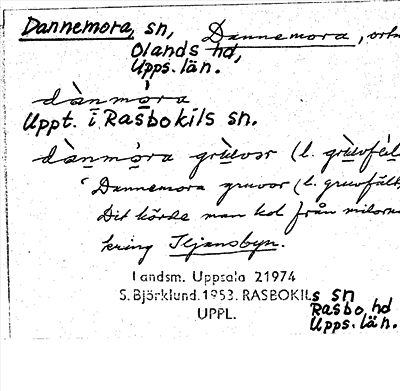 Dannemora, sn, Dannemora, ortn
Olands hd,
Upps. län.
dànmóra
Uppt. i Rasbokils sn.
dànmóra grùvor (l. grùvfäl
"Dannemora gruvor (l. gruvfält)
Dit körde man kol från milorna
kring Iljansbyn.
Landsm. Uppsala 21974
S. Björklund. 1953. RASBOKILs sn
UPPL. Rasbo hd
Upps. län.